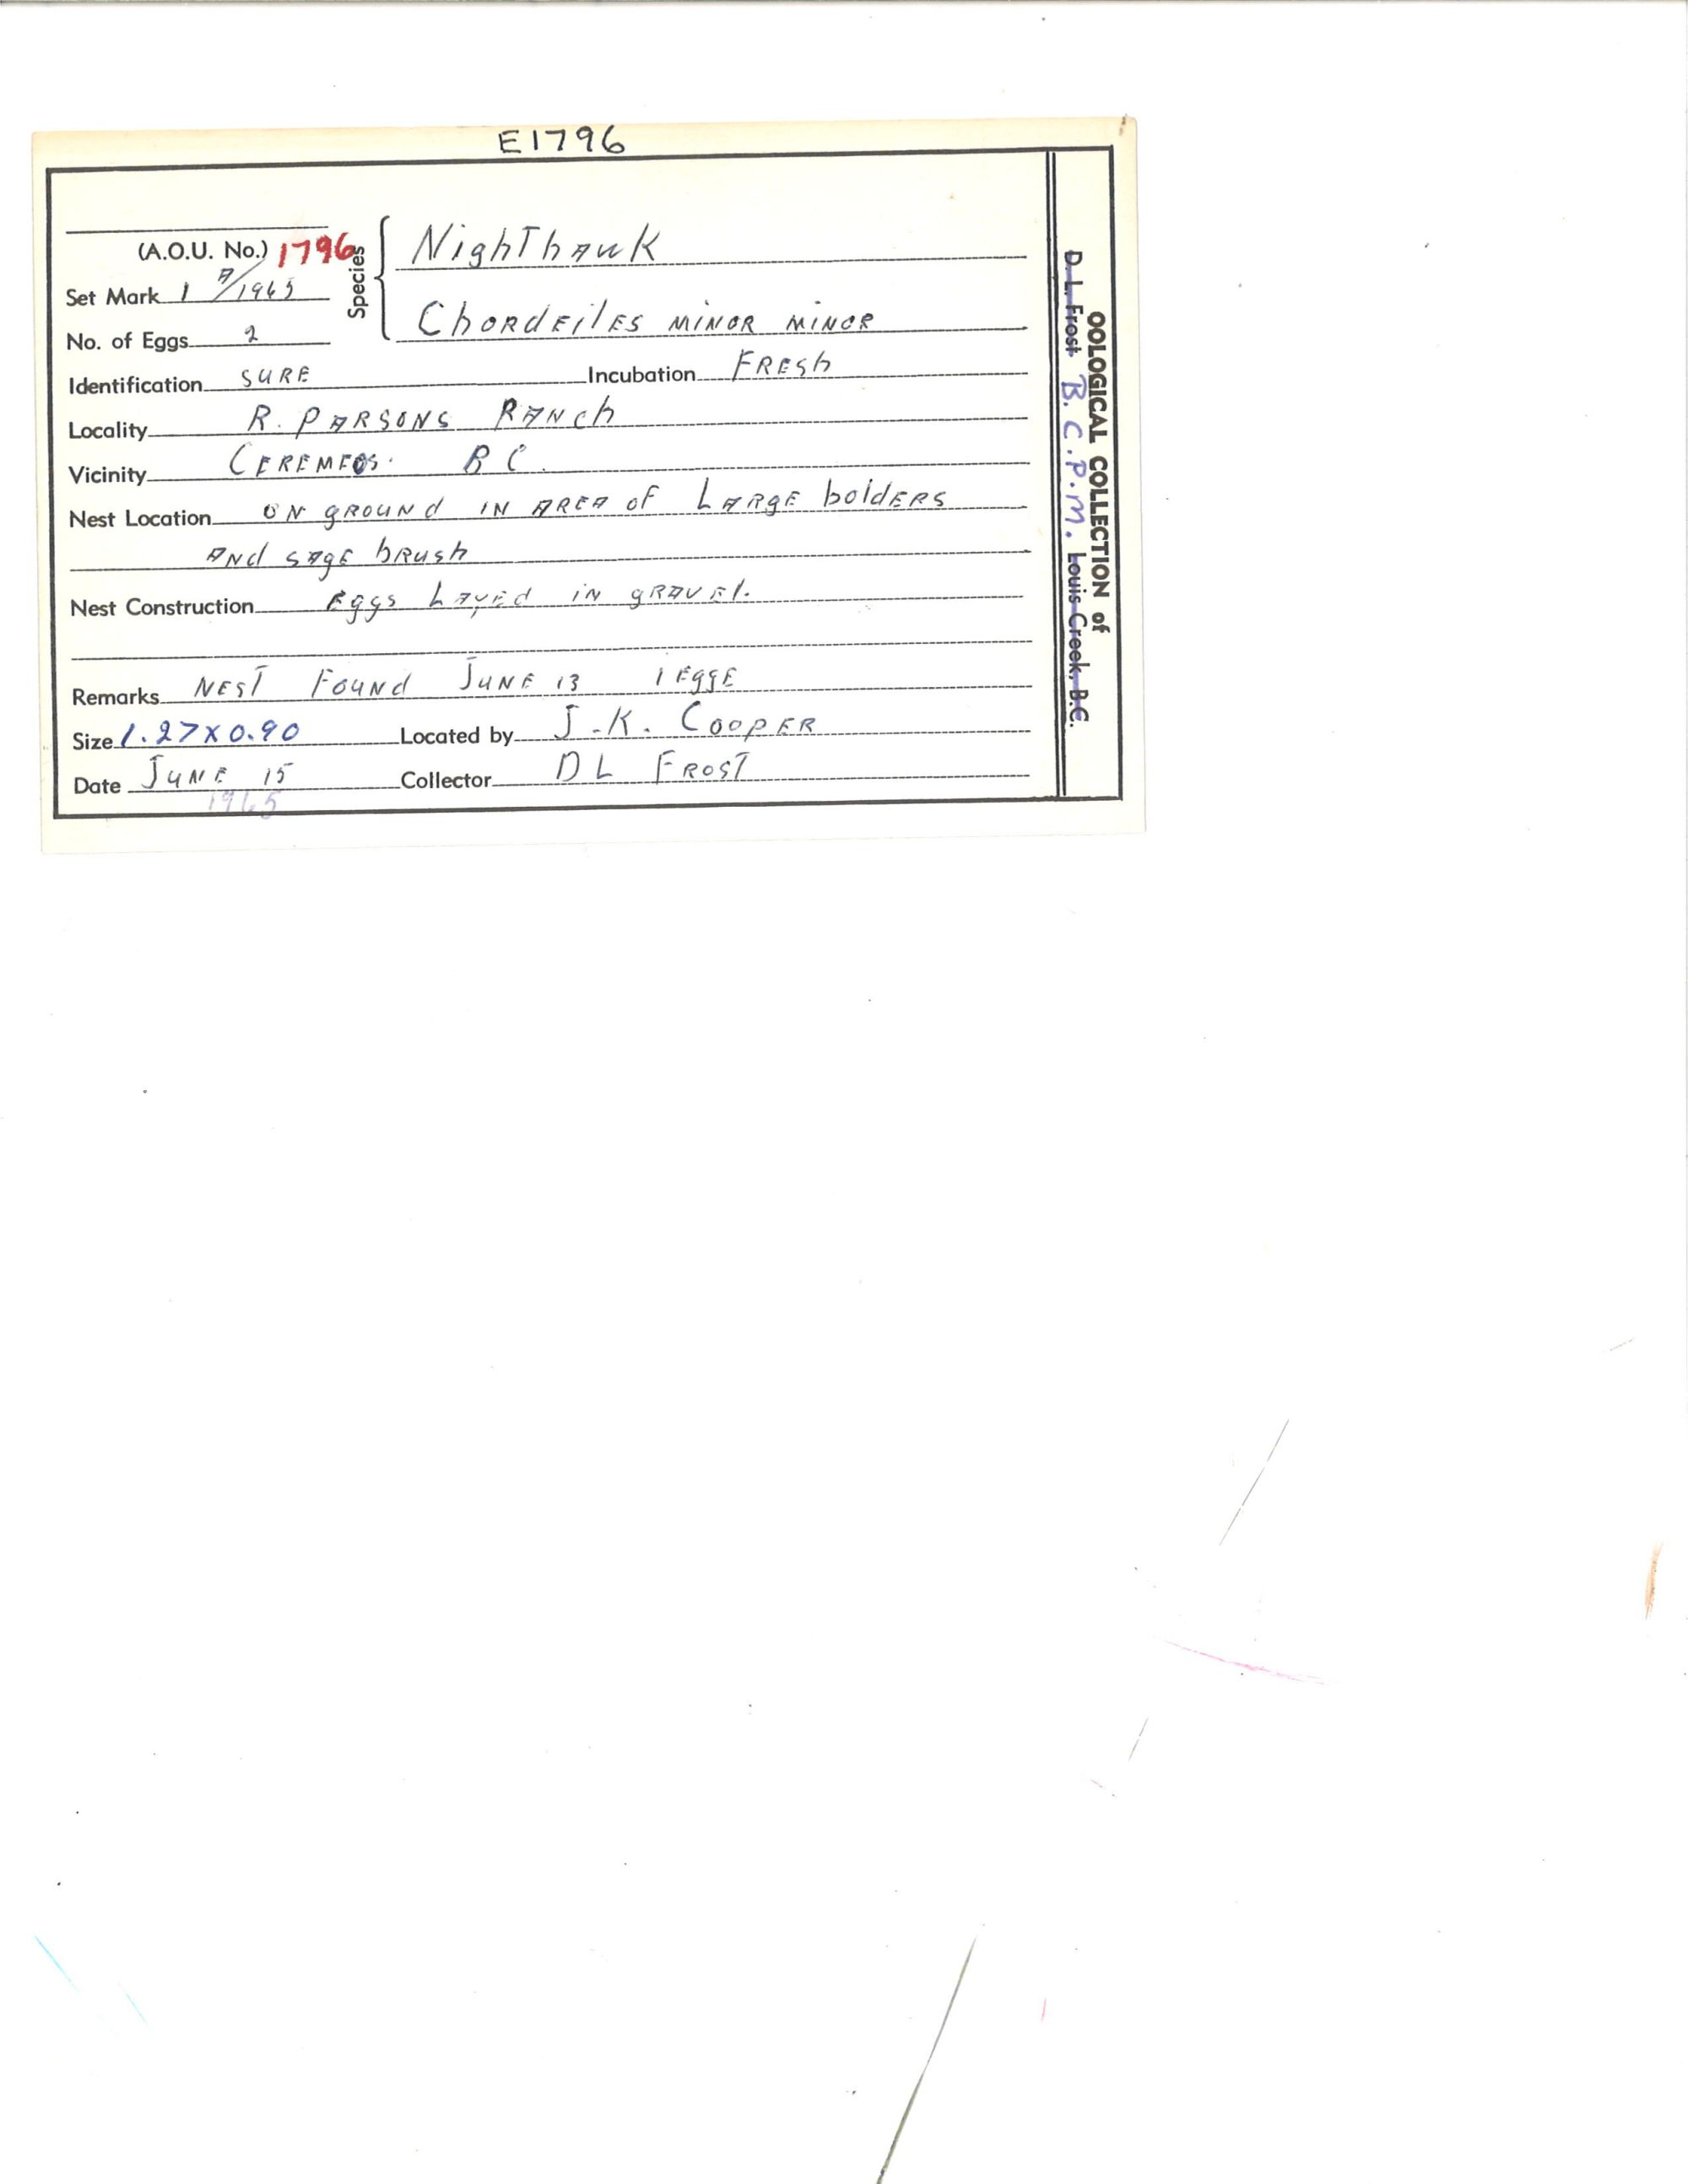 E1796
(A.O.U. No.) 1796
Species
Nighthawk
Set Mark 1 A/1965
Chordeiles minor minor
No. of Eggs 2
Identification SURE Incubation FRESh
Locality R. PARSONS RANch
Vicinity CEREMEOS. BC.
Nest Location ON gROUNd IN AREA OF LARgE bolders
ANd SAgE bRUSh
Nest Construction Eggs LAyEd iN gRAVEl.
Remarks NEST FOUNd JUNE 13 1 EggE
Size 1.27 x 0.90 Located by J.K. COOPER
Date JUNE 15 Collector D L FROST
1965
OOLOGICAL COLLECTION of
D. L. Frost B.C.P.M. Louis Creek, B.C.